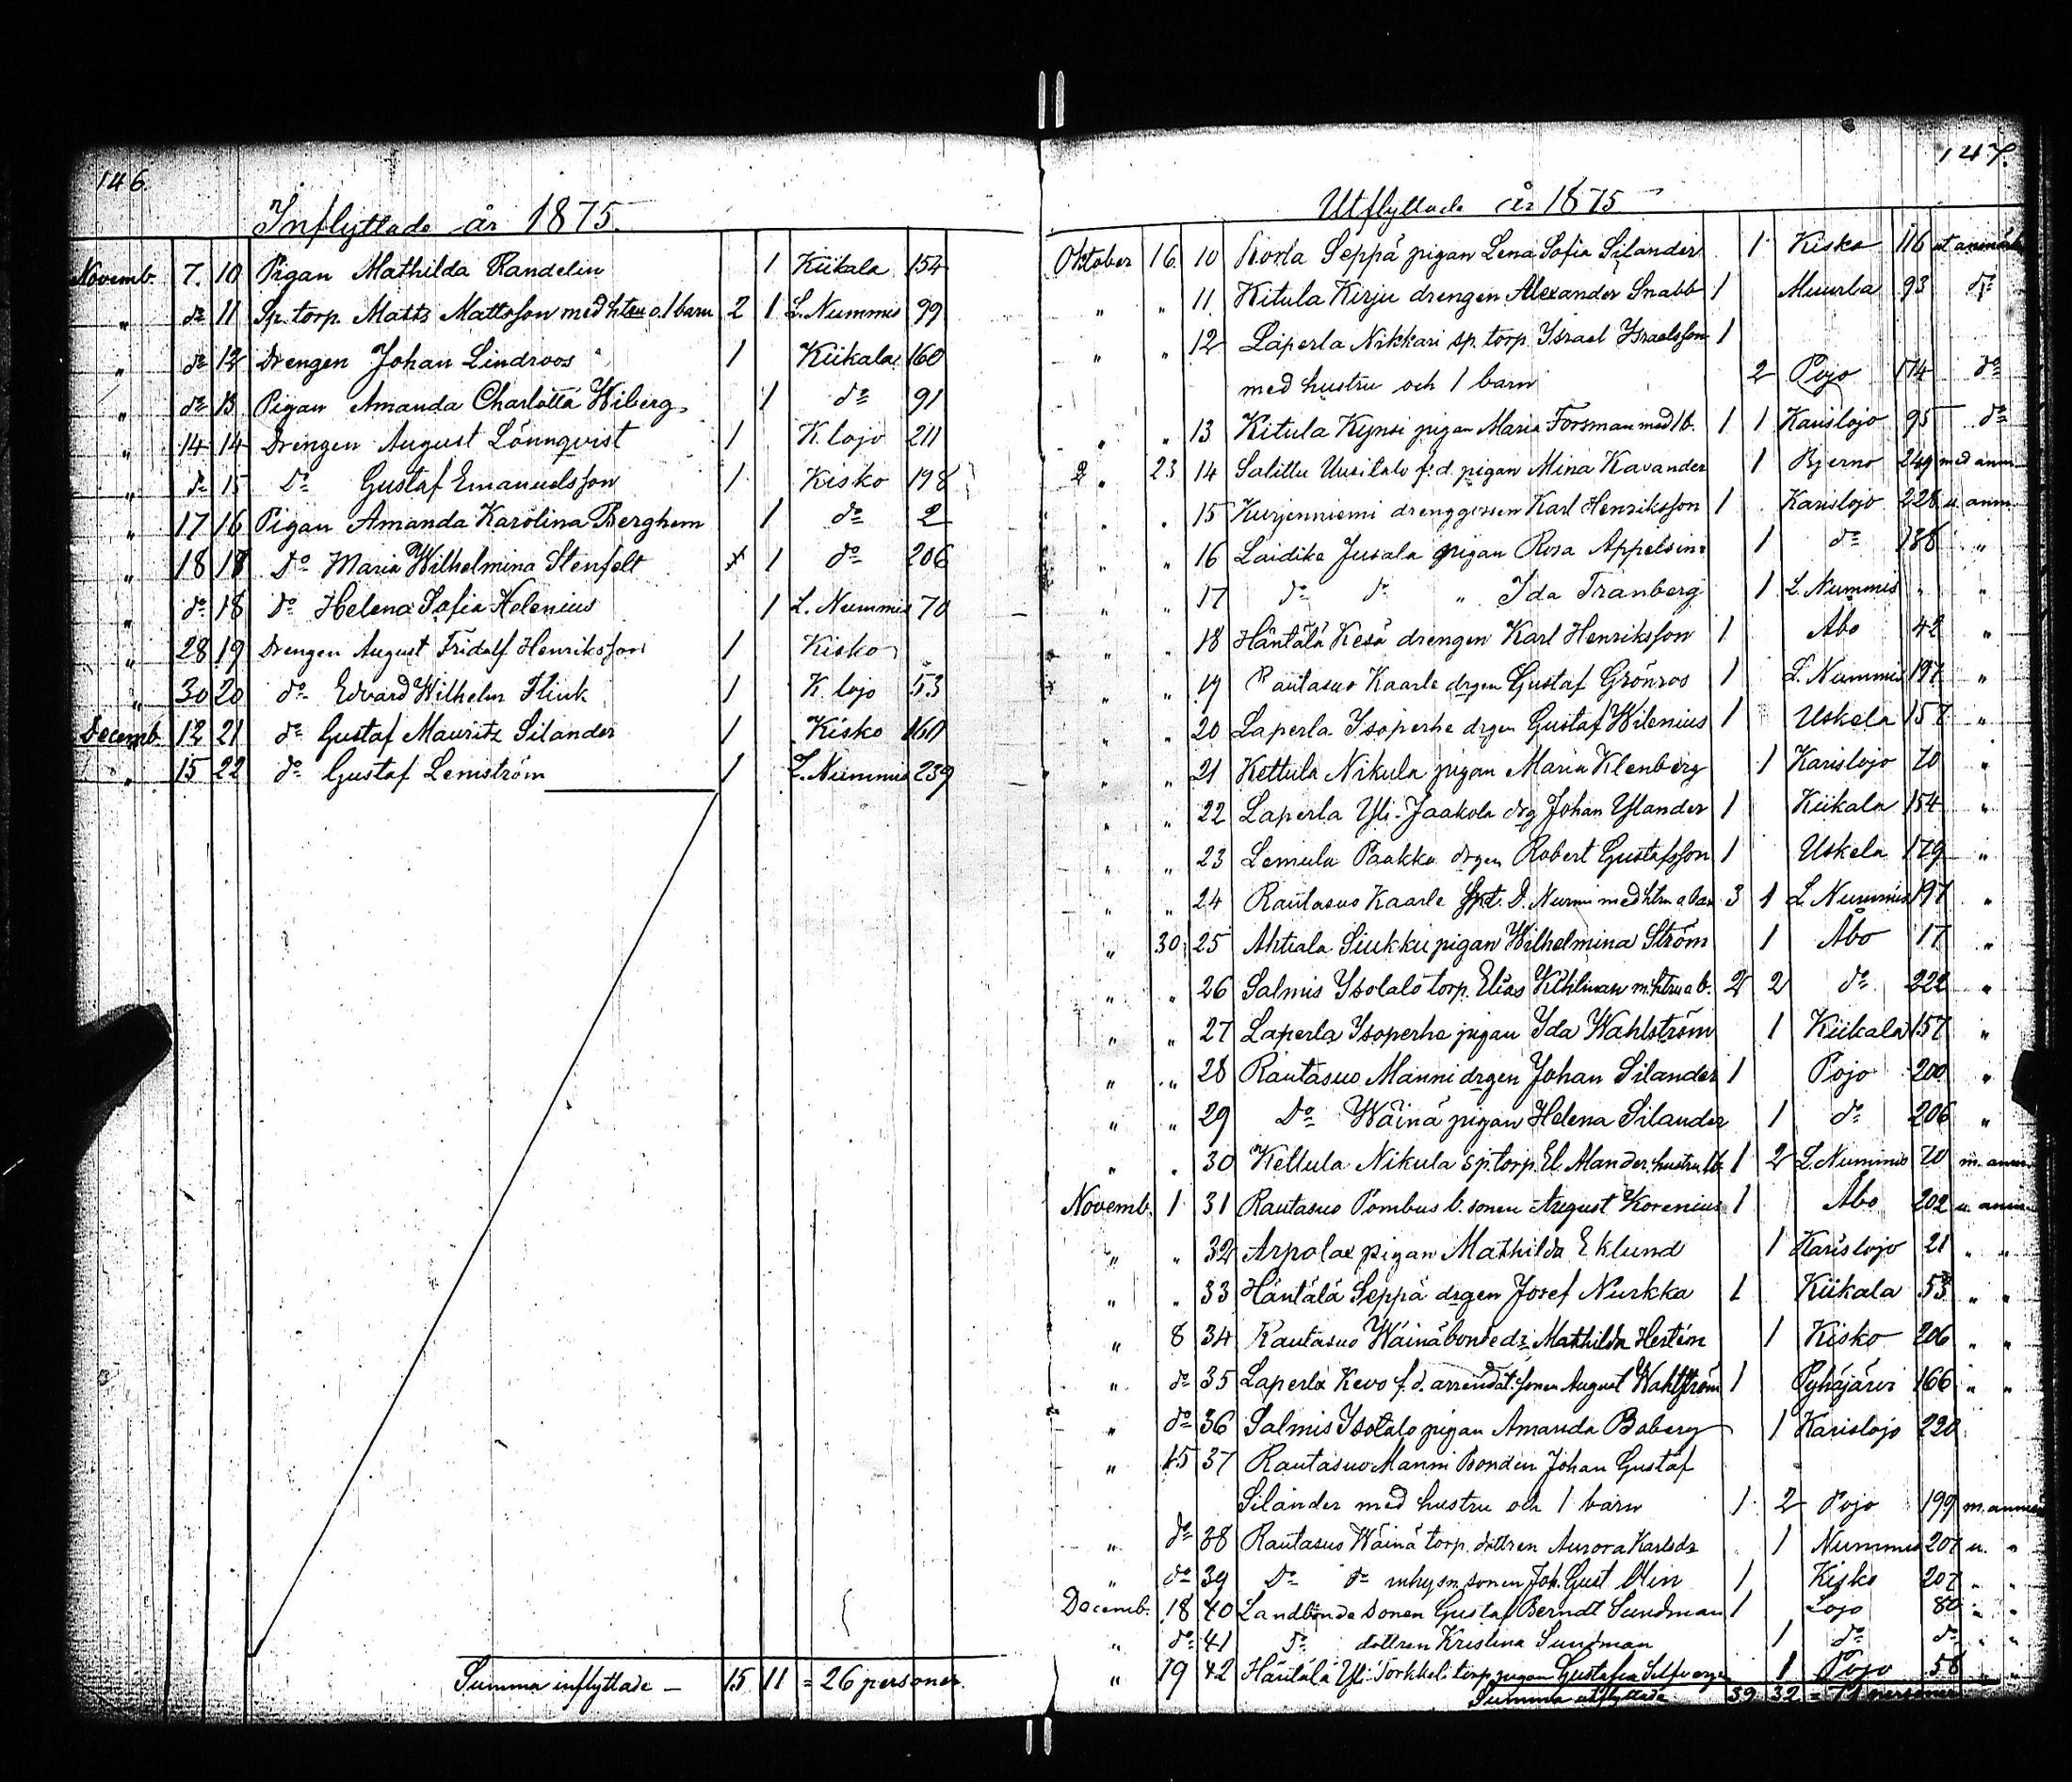 146.
Inflyttade år 1875.
Novemb. 7. 10 Pigan Mathilda Randelin 1 Kiikala 154
" do 11 Sp. torp. Matts Mattsson med htru o. 1 barn 2 1 L. Nummis 99
" do 12 Drengen Johan Lindroos 1 Kiikala 160
" do 13 Pigan Amanda Charlotta Wiberg 1 do 91
" 14 14 Drengen August Lönnqvist 1 K. lojo 211
" do 15 Do Gustaf Emanuelsson 1 Kisko 198
" 17 16 Pigan Amanda Karolina Berghem 1 do 2
" 18 18 Do Maria Wilhelmina Stenfelt 1 do 206
" do 18 do Helena Sofia Helenius 1 L. Nummis 70
" 28 19 Drengen August Fridolf Henriksson 1 Kisko
" 30 20 do Edvard Wilhelm Flink 1 K. lojo 53
Decemb. 12 21 do Gustaf Mauritz Silander 1 Kisko 160
" 15 22 do Gustaf Lemström 1 L. Nummis 239
Summa inflyttade — 15 11 = 26 personer.
147.
Utflyttade år 1875
Oktober 16. 10 Kosla Seppä pigan Lena Sofia Silander 1 Kisko 116 ut anmärk
" " 11. Kitula Kirju drengen Alexander Snabb 1 Muurla 93 do
" " 12 Laperla Nikkari sp. torp. Israel Israelsson 1
med hustru och 1 barn 2 Pojo 174 do
" " 13 Kitula Kynsi pigan Maria Forsman med 1 b. 1 1 Karislojo 95 do
" 23 14 Salittu Uusitalo f. d. pigan Mina Kavander 1 Bjerno 249 med anm
" " 15 Kurjenniemi drenggossen Karl Henriksson 1 Karislojo 228 u. anm
" " 16 Laidike Jusala pigan Rosa Appelsin 1 do 188 "
" " 17 do do " Ida Tranberg 1 L. Nummis " "
" " 18 Häntälä Kesä drengen Karl Henriksson 1 Åbo 42 "
" " 19 Rautasuo Kaarle drgen Gustaf Grönros 1 L. Nummis 197 "
" " 20 Laperla Isoperhe drgen Gustaf Wilenius 1 Uskela 157 "
" " 21 Kettula Nikula pigan Maria Klenberg 1 Karislojo 70 "
" " 22 Laperla Yli-Jaakola drg Johan Ylander 1 Kiikala 154 "
" " 23 Lemula Paakko drgen Robert Gustafsson 1 Uskela 179 "
" " 24 Rautasuo Kaarle Spt. D. Nurmi med htru o. bar 3 1 L. Nummis 197 "
" 30 25 Ahtiala Siukku pigan Wilhelmina Ström 1 Åbo 17 "
" " 26 Salmis Isotalo torp. Elias Kihlman m. htru o b. 2 2 do 222 "
" " 27 Laperla Isoperhe pigan Ida Wahlström 1 Kiikala 157 "
" " 28 Rautasuo Manni drgen Johan Silander 1 Pojo 200 "
" " 29 Do Wäinä pigan Helena Silander 1 do 206 "
" " 30 Kettula Nikula sp. torp. El. Alander, hustru 1 b. 1 2 L. Nummis 70 m. anm
Novemb. 1 31 Rautasuo Pombus b. sonen August Korenius 1 Åbo 202 u. anm
" " 32 Arpolax pigan Mathilda Eklund 1 Karislojo 21 " "
" " 33 Häntälä Seppä drgen Josef Nurkka 1 Kiikala 53 " "
" 8 34 Rautasuo Wäinä bonde dr Mathilda 1 Kisko 206 " "
" do 35 Laperla Kevo f. d. arrendat. sonen August Wahlström 1 Pyhäjärvi 166 " "
" do 36 Salmis Isotalo pigan Amanda Boberg 1 Karislojo 220
" 15 37 Rautasuo Manni Bonden Johan Gustaf
Silander med hustru och 1 barn 1 2 Pojo 199 m. anm
" do 38 Rautasuo Wäinä torp. dottren Aurora Karlsdr 1 Nummis 207 u. "
" do 39 Do do inhysm. sonen Joh. Gust. Olin 1 Kisko 207 " "
Decemb. 18 40 Landbonde sonen Gustaf Berndt Sundman 1 Lojo 80 " "
" do 41 do dottren Kristina Sundman 1 do do " "
" 19 42 Häntälä Yli-Torkkeli torp. pigan Gustafva 1 Pojo 58 " "
Summa utflyttade 39 32 = 71 personer